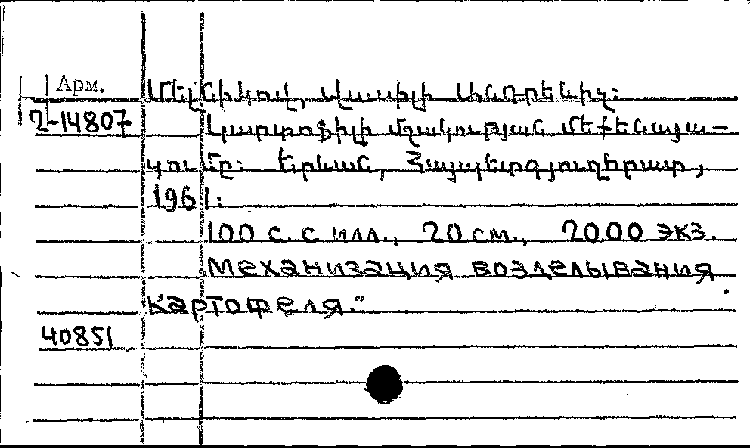 Арм. Մելնիկով, Վասիլի Անդրեևիչ:
2-14807 Կարտոֆիլի մշակության մեքենայա-
ցումը: Երևան, Հայպետգյուղհրատ,
1961:
100 с. с илл., 20 см., 2000 экз.
Механизация возделывания
картофеля."
40851